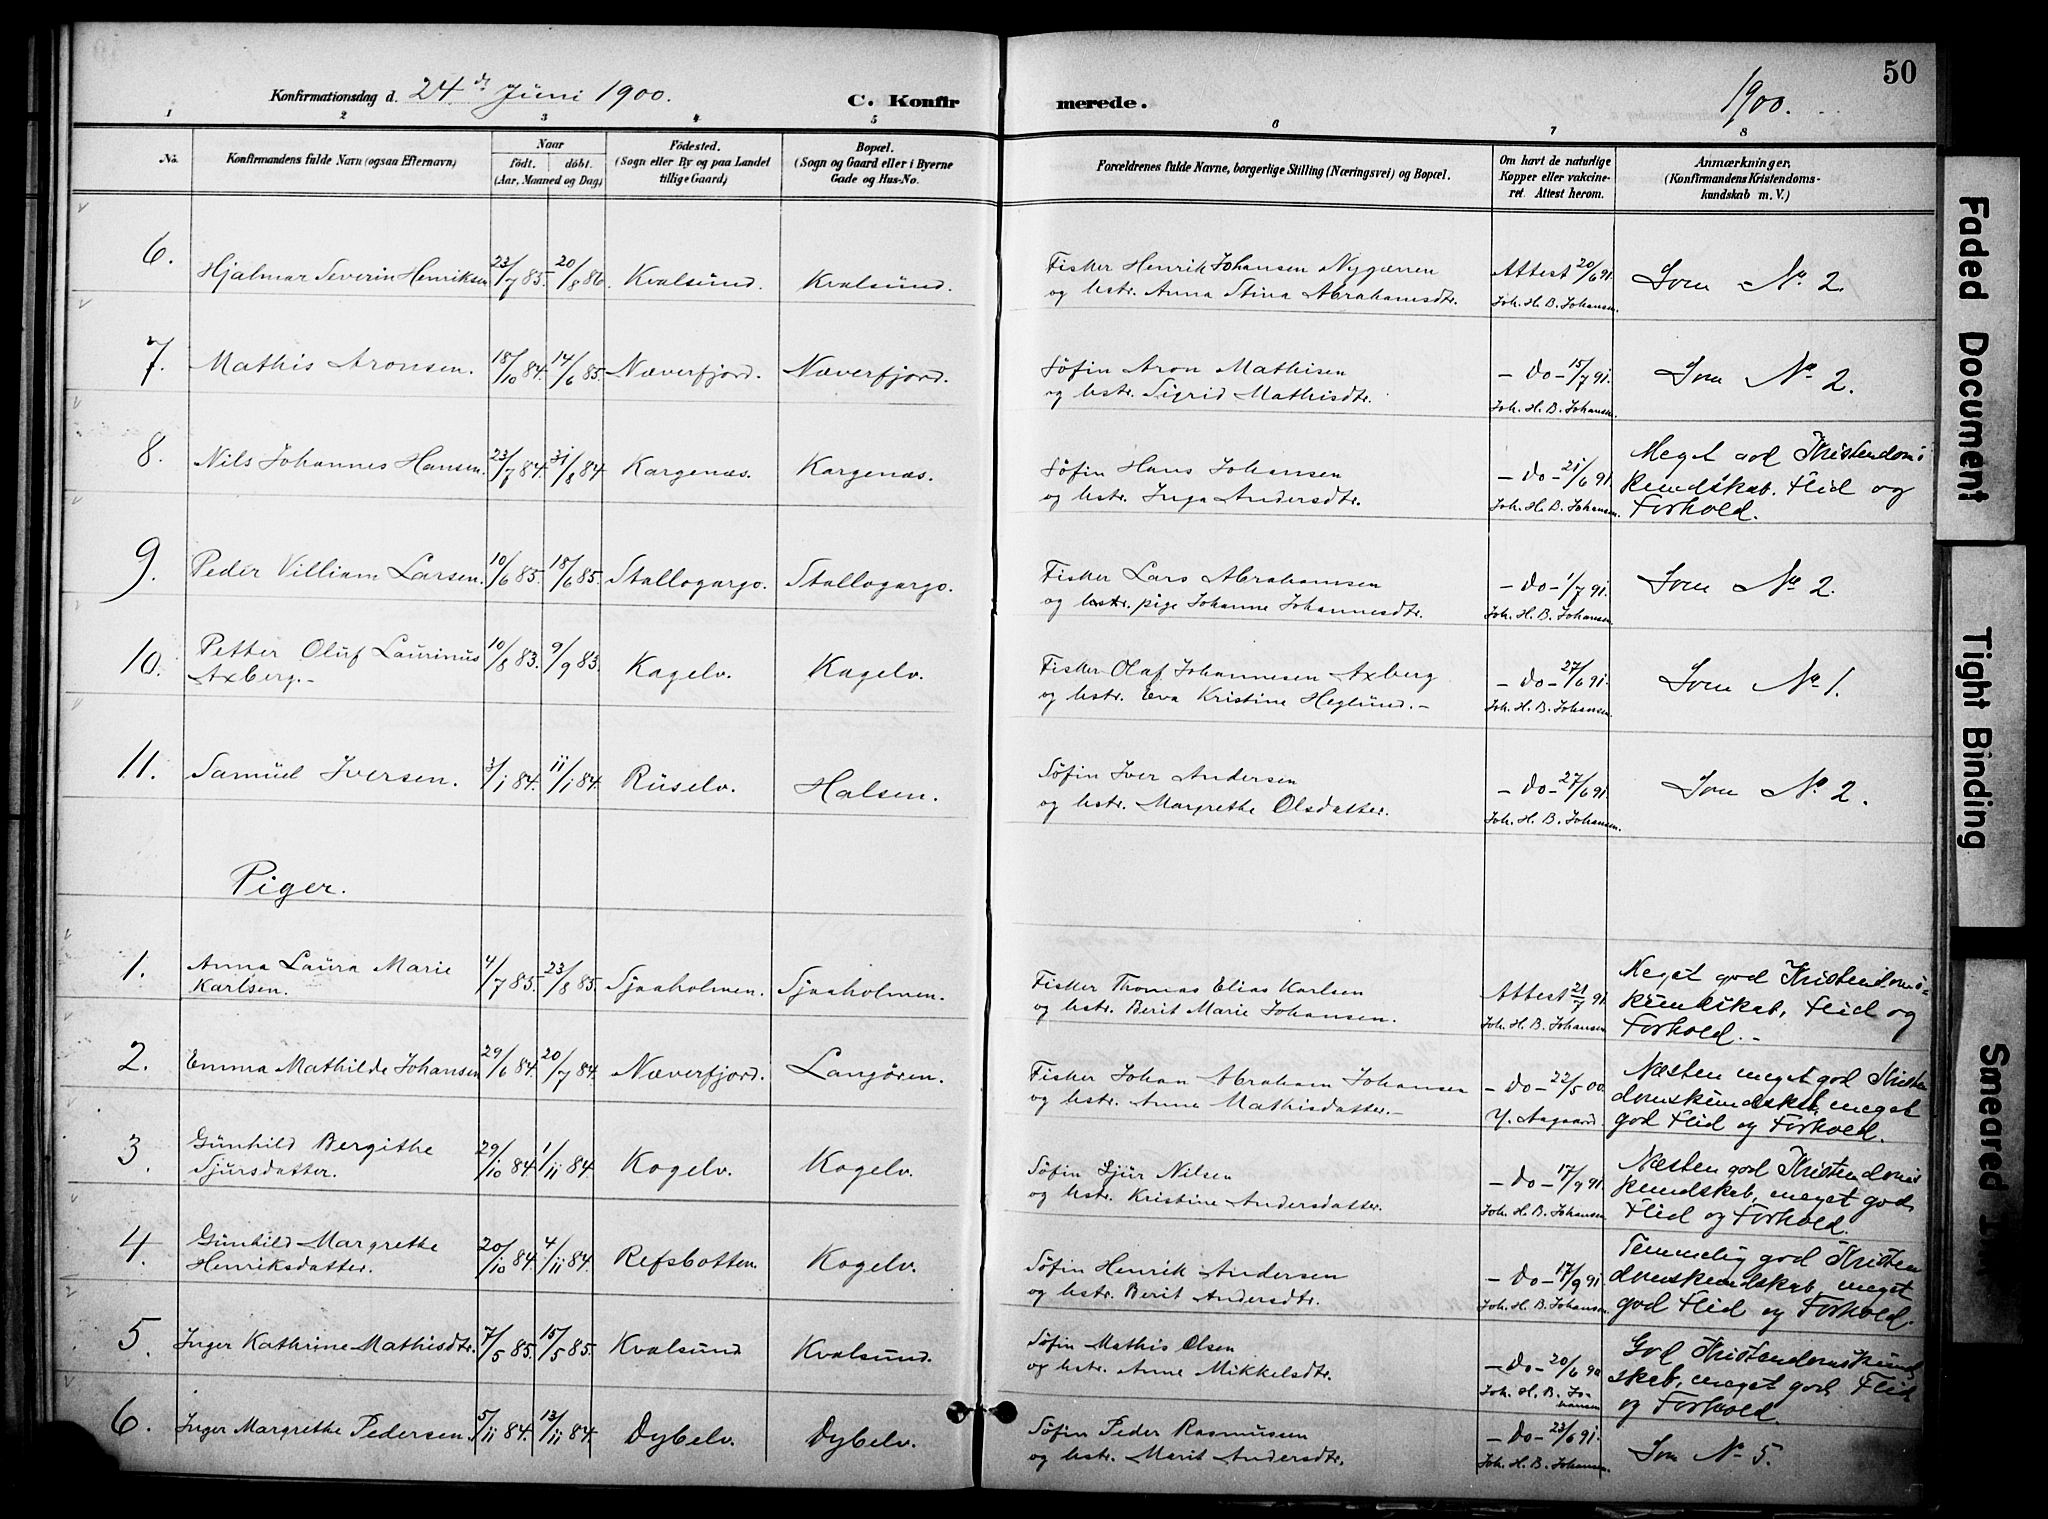 50
Konfirmationsdag d. 24de Juni 1900. C. Konfirmerede. 1900.
1 2 3 4 5 6 7 8
No. Konfirmandens fulde Navn (ogsaa Efternavn) Naar födt. döbt. (Aar, Maaned og Dag) Födested. (Sogn eller By og paa Landet tillige Gaard) Bopæl. (Sogn og Gaard eller i Byerne Gade og Hus-No. Forældrenes fulde Navne, borgerlige Stilling (Næringsvei) og Bopæl. Om havt de naturlige Kopper eller vakcineret. Attest herom. Anmærkninger, (Konfirmandens Kristendomskundskab m. V.)
6. Hjalmar Severin Henriksen 23/7 85. 20/8 86. Kvalsund. Kvalsund. Fisker Henrik Johansen Nygæren Attest 20/6 91. Som No 2.
og hstr. Anna Stina Abrahamsdtr. Joh. H. B. Johansen.
7. Mathis Aronsen. 18/10 84. 14/6 85. Næverfjord. Næverfjord. Søfin Aron Mathisen – do – 15/7 91. Som No 2.
og hstr. Sigrid Mathisdtr. Joh. H. B. Johansen
8. Nils Johannes Hansen. 23/7 84. 31/8 84 Kargenæs. Kargenæs. Søfin Hans Johansen – do – 21/6 91. Meget god Kristendoms
og hstr. Inga Andersdtr. Joh. H. B. Johansen. kundskab. Flid og
Forhold.
9. Peder Villiam Larsen. 10/6 85. 18/6 85. Stallogargo. Stallogargo. Fisker Lars Abrahamsen – do – 1/7 91. Som No 2.
og hstr. pige Johanne Johannesdtr. Joh. H. B. Johansen.
10. Petter Oluf Laurinus 10/8 83. 9/9 83. Kagelv. Kagelv. Fisker Olaf Johannesen Axberg – do – 27/6 91. Som No 1.
Axberg. – og hstr. Eva Kristine Heglund. – Joh. H. B. Johansen.
11. Samuel Iversen. 3/1 84. 11/1 84. Ruselv. Halsen. Søfin Iver Andersen – do – 27/6 91. Som No 2.
og hstr. Margrethe Olsdatter. Joh. H. B. Johansen.
Piger.
1. Anna Laura Marie 4/7 85. 23/8 85. Sjaaholmen. Sjaaholmen. Fisker Thomas Elias Karlsen Attest 21/7 91. Meget god Kristendoms-
Karlsen. og hstr. Berit Marie Johansen. Joh. H. B. Johansen kundskab, Flid og
Forhold. –
2. Emma Mathilde Johansen 29/6 84. 20/7 84. Næverfjord. Langören. Fisker Johan Abraham Johansen – do – 22/5 00. Næsten meget god Kristen
og hstr. Anne Mathisdatter. – Y. Aagaard. domskundskab, meget
god Flid og Forhold.
3. Gunhild Bergithe 29/10 84. 1/11 84. Kogelv. Kogelv. Søfin Sjur Nilsen – do – 17/9 91. Næsten god Kristendoms
Sjursdatter. og hstr. Kristine Andersdatter. Joh. H. B. Johansen kundskab, meget god
Flid og Forhold.
4. Gunhild Margrethe 20/10 84. 4/11 84. Refsbotten. Kogelv. Søfin Henrik Andersen – do – 17/9 91 Temmelig god Kristen
Henriksdatter. og hstr. Berit Andersdtr. Joh. H. B. Johansen. domskundskab, meget
god Flid og Forhold.
5. Inger Kathrine Mathisdtr. 7/5 85. 15/5 85. Kvalsund Kvalsund. Søfin Mathis Olsen – do – 20/6 90 God Kristendomskund
og hstr. Anne Mikkelsdtr. Joh. H. B. Johansen skab, meget god Flid
og Forhold.
6. Inger Margrethe Pedersen. 5/11 84. 13/11 84. Dybelv. Dybelv. Søfin Peder Rasmussen – do – 23/6 91. Som No 5.
og hstr. Marit Andersdtr. Joh. H. B. Johansen.
Faded Document
Tight Binding
Smeared